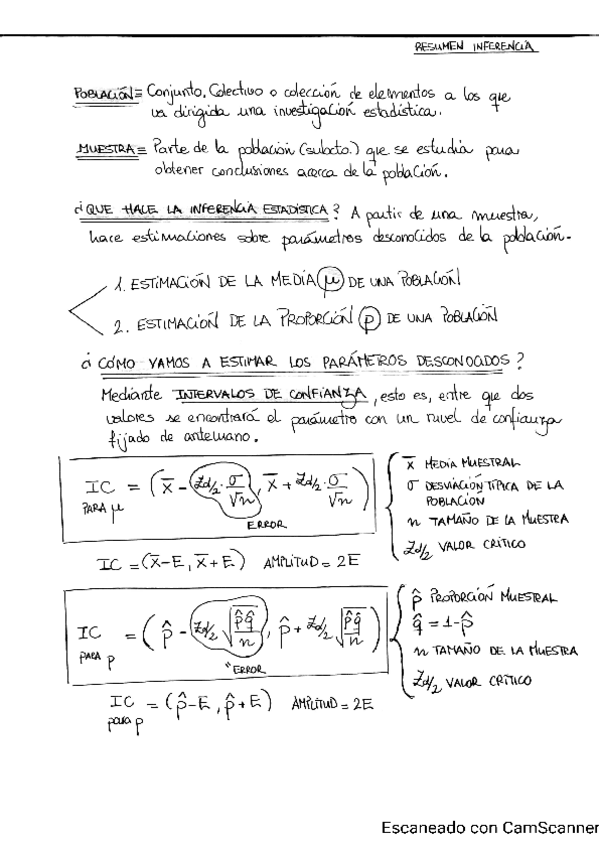 RESUMEN INFERENCIA
POBLACIÓN ≡ Conjunto, Colectivo o colección de elementos a los que
va dirigida una investigación estadística.
MUESTRA ≡ Parte de la población (subcto.) que se estudia para
obtener conclusiones acerca de la población.
¿QUE HACE LA INFERENCIA ESTADÍSTICA? A partir de una muestra,
hace estimaciones sobre parámetros desconocidos de la población.
1. ESTIMACIÓN DE LA MEDIA μ DE UNA POBLACIÓN
2. ESTIMACIÓN DE LA PROPORCIÓN p DE UNA POBLACIÓN
¿CÓMO VAMOS A ESTIMAR LOS PARÁMETROS DESCONOCIDOS?
Mediante INTERVALOS DE CONFIANZA, esto es, entre que dos
valores se encontrará el parámetro con un nivel de confianza
fijado de antemano.
IC PARA μ = (x̄ - Zα/2 · σ/√n, x̄ + Zα/2 · σ/√n)
ERROR
x̄ MEDIA MUESTRAL
σ DESVIACIÓN TÍPICA DE LA
POBLACIÓN
n TAMAÑO DE LA MUESTRA
Zα/2 VALOR CRÍTICO
IC = (x̄-E, x̄+E) AMPLITUD = 2E
IC PARA p = (p̂ - Zα/2 √(p̂q̂/n), p̂ + Zα/2 √(p̂q̂/n))
"ERROR
p̂ PROPORCIÓN MUESTRAL
q̂ = 1-p̂
n TAMAÑO DE LA MUESTRA
Zα/2 VALOR CRÍTICO
IC para p = (p̂-E, p̂+E) AMPLITUD = 2E
Escaneado con CamScanner